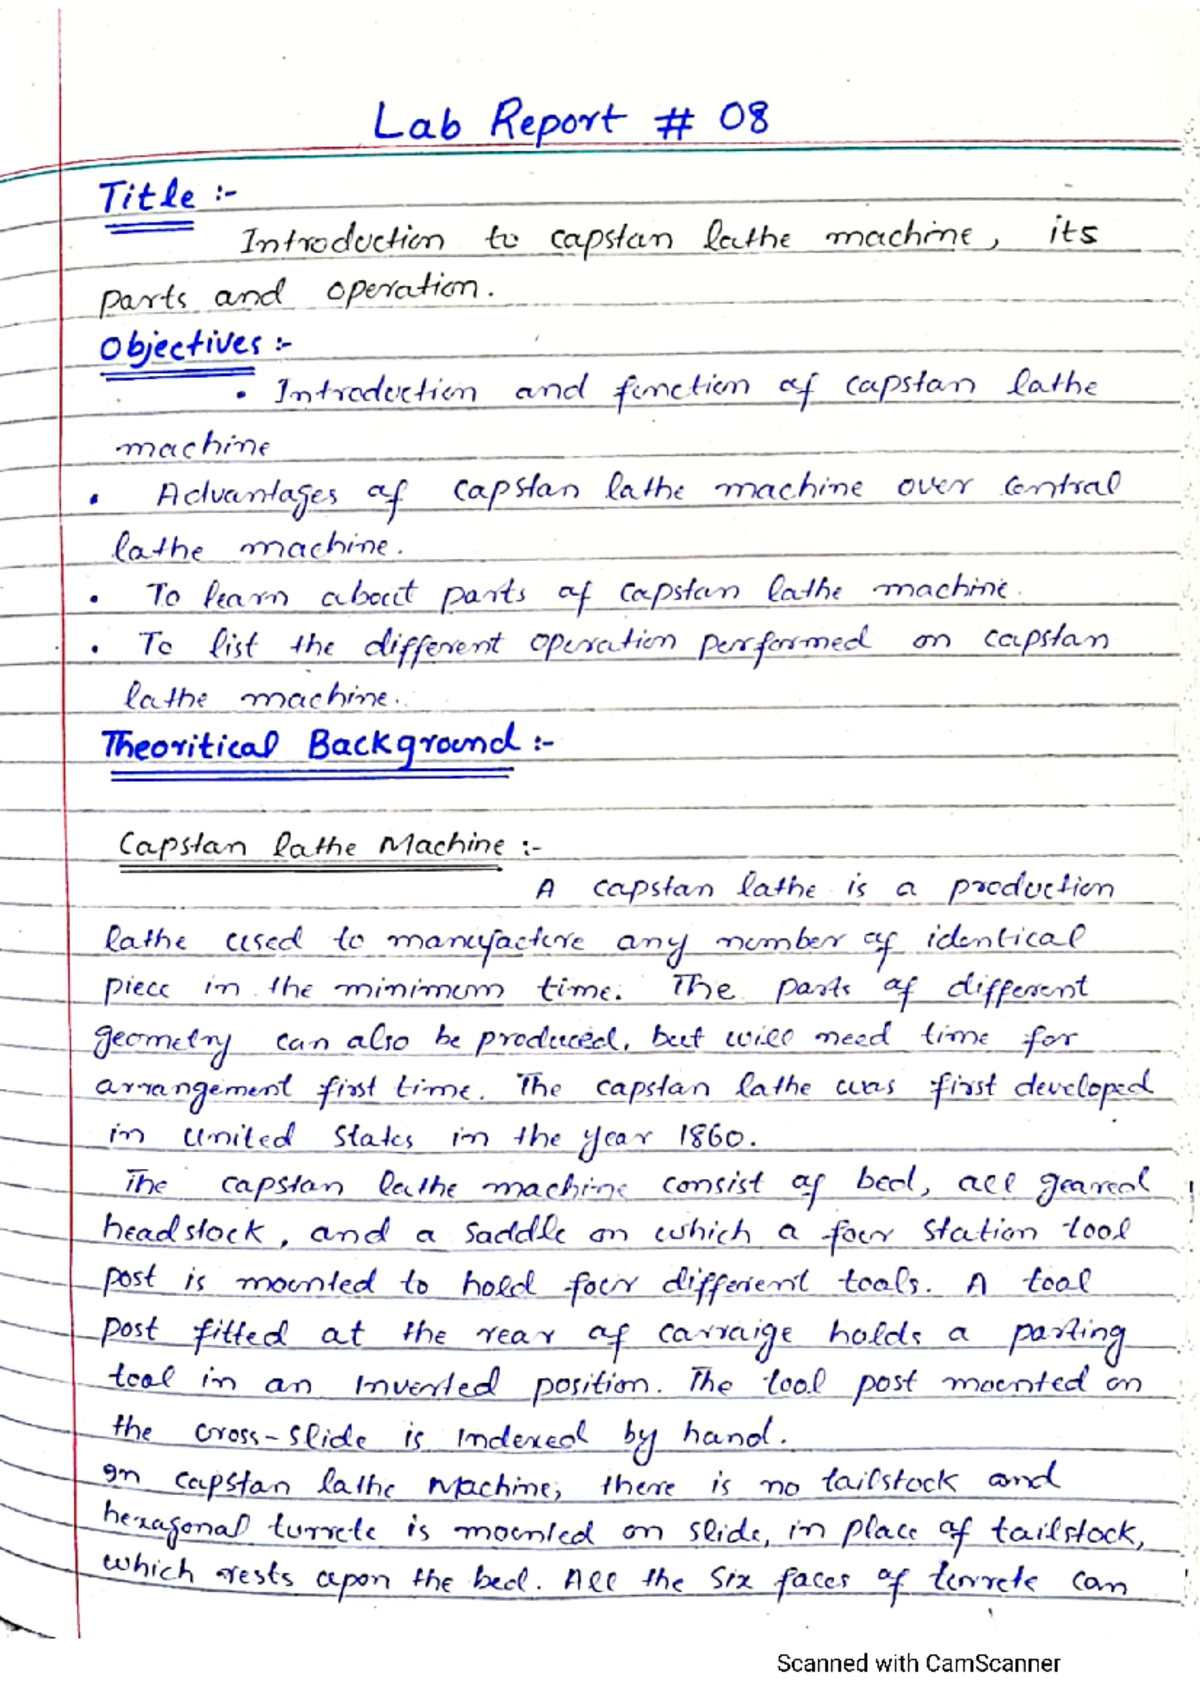 Lab Report # 08
Title :-
Introduction to capstan lathe machine, its
parts and operation.
Objectives :-
• Introduction and function of capstan lathe
machine
• Advantages of capstan lathe machine over central
lathe machine.
• To learn about parts of capstan lathe machine.
• To list the different operation performed on capstan
lathe machine.
Theoritical Background :-
Capstan lathe Machine :-
A capstan lathe is a production
lathe used to manufacture any number of identical
piece in the minimum time. The parts of different
geometry can also be produced, but will need time for
arrangement first time. The capstan lathe was first developed
in united states in the year 1860.
The capstan lathe machine consist of bed, all geared
headstock, and a saddle on which a four station tool
post is mounted to hold four different tools. A tool
post fitted at the rear of carraige holds a parting
tool in an inverted position. The tool post mounted on
the cross-slide is indexed by hand.
In capstan lathe Machine, there is no tailstock and
hexagonal turrete is mounted on slide, in place of tailstock,
which rests upon the bed. All the six faces of turrete can
Scanned with CamScanner